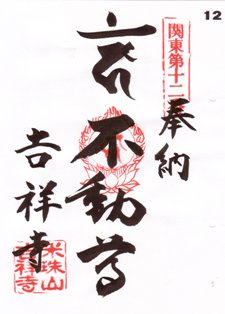 12
関東第十二
奉納
不動尊
吉祥寺
米珠山
吉祥寺